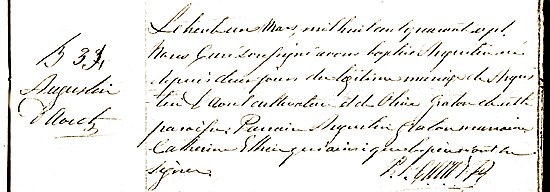 B 33
Augustin
d'Aoust
Le trent un Mars, mil huit cent quarant sept
Nous Curé soussigné avons baptisé Augustin né
depuis deux jours du légitime mariage de Augus
tin d'Aoust cultivateur et de Olive Graton de cette
paroisse; Parrain Augustin Graton marraine
Catherine Ethier qui ainsi que le père n'ont su
signer.